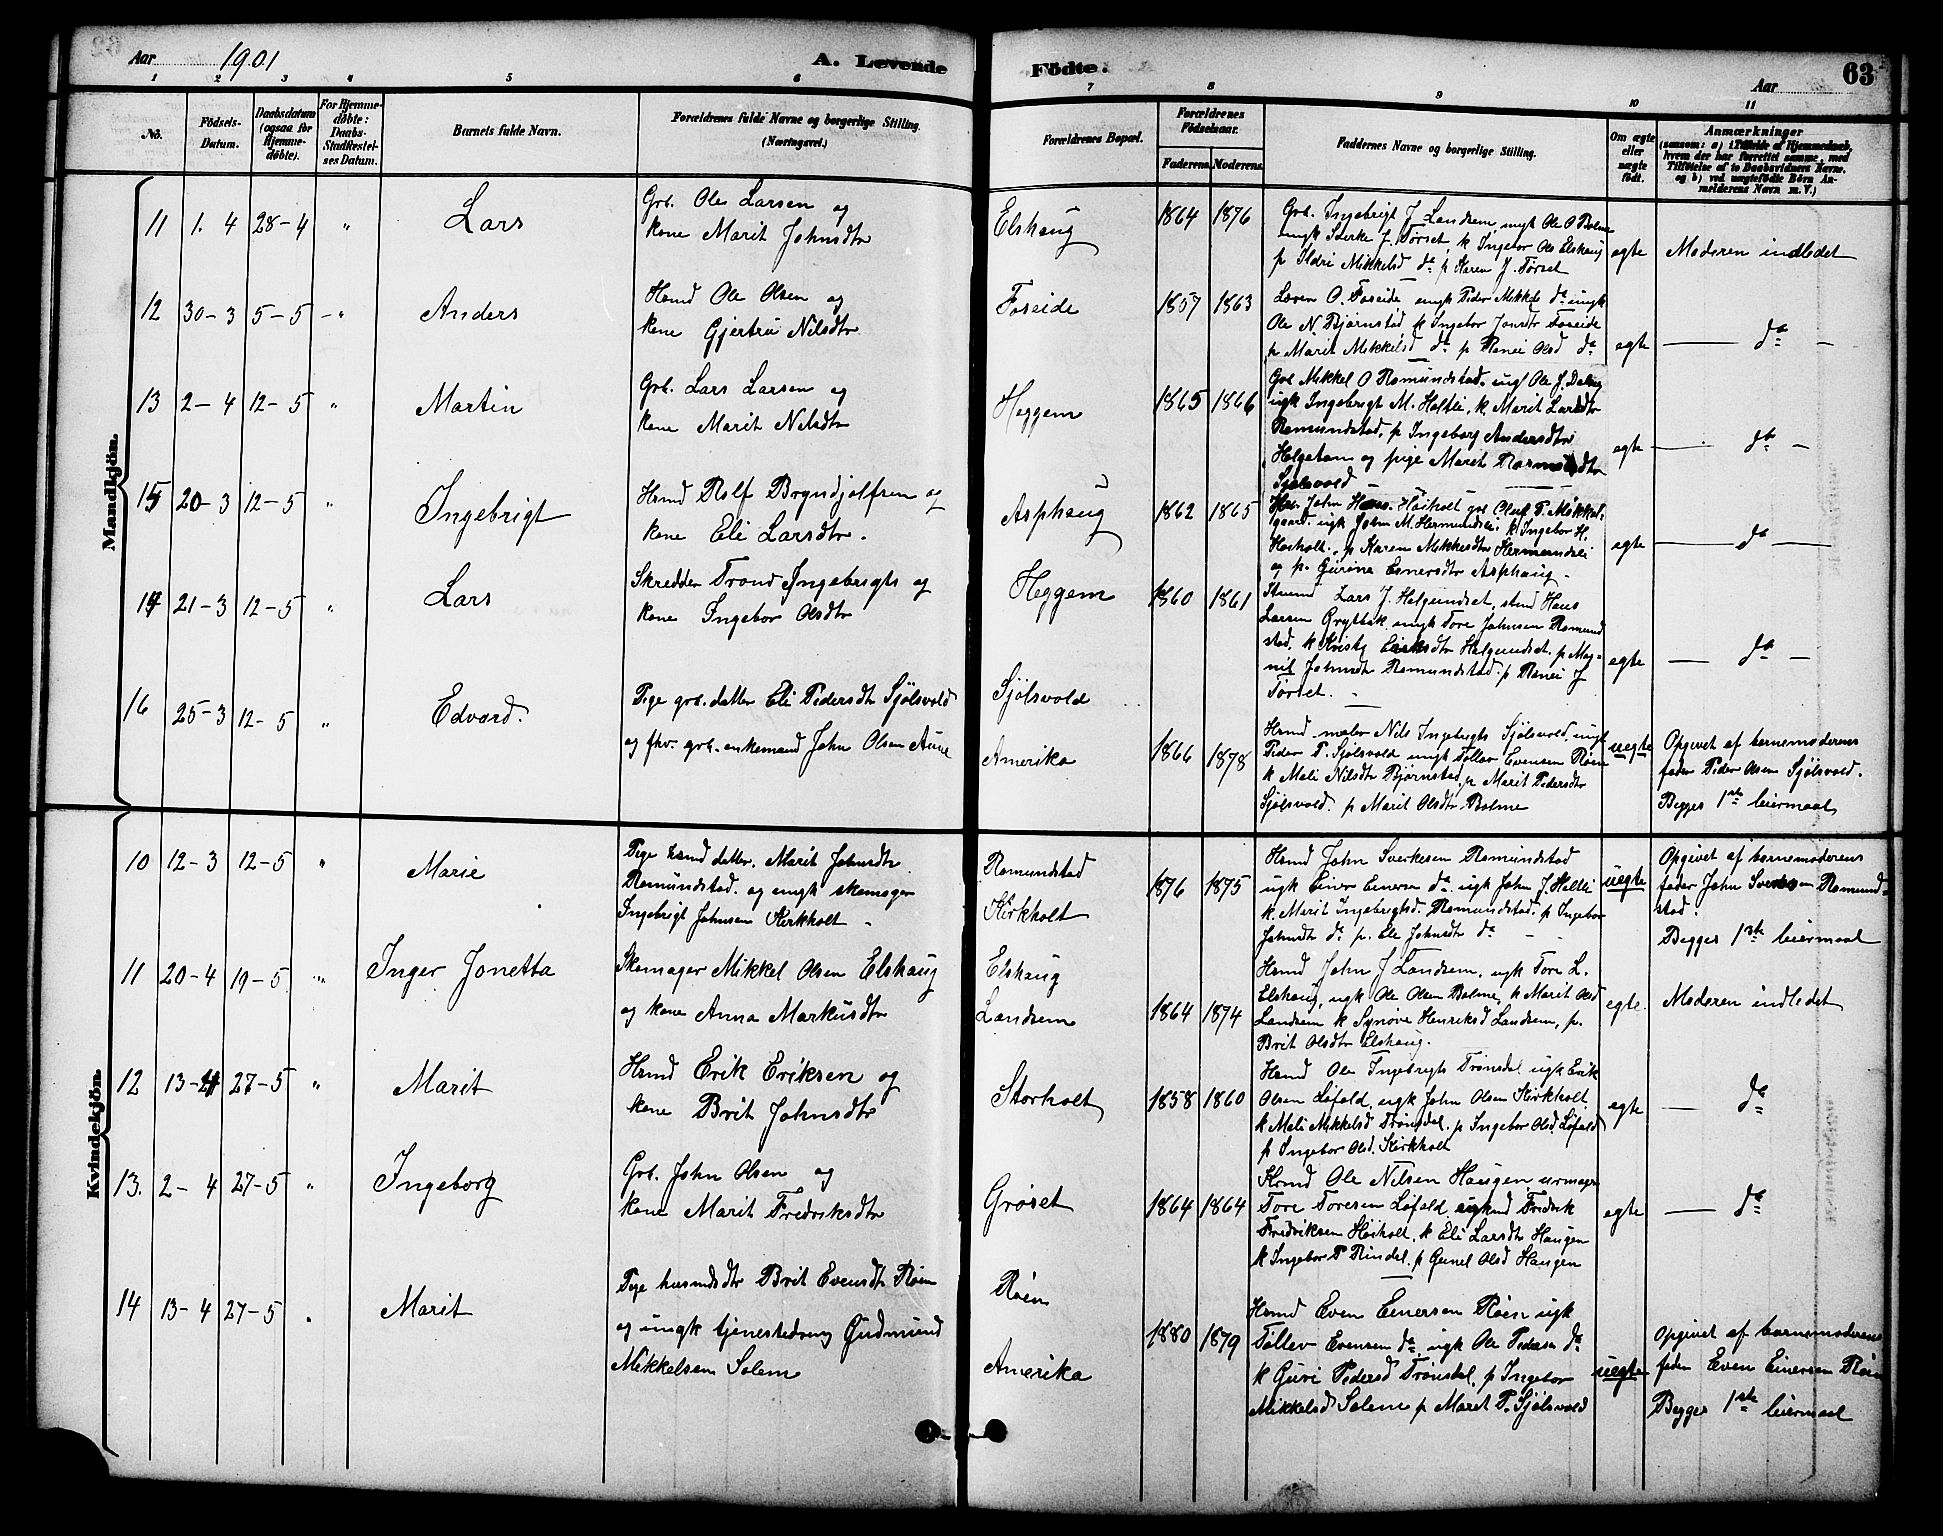 Aar 1901
A. Levende
Födte.
Aar
63
1 2 3 4 5 6 7 8 9 10 11
No.
Födsels-
Datum.
Daabsdatum
(ogsaa for
Hjemme-
døbte).
For Hjemme-
døbte:
Daabs-
Stadfæstel-
ses Datum.
Barnets fulde Navn.
Forældrenes fulde Navne og borgerlige Stilling.
(Næringsvei.)
Forældrenes Bopæl.
Forældrenes
Födselsaar.
Faderens. Moderens.
Faddernes Navne og borgerlige Stilling.
Om ægte
eller
uægte
født.
Anmærkninger
(saasom: a) i Tilfælde af Hjemmedaab,
hvem der har forrettet samme, med
Tilføielse af to Daabsvidners Navne,
og b) ved uægtefødte Börn An-
melderens Navn m. V.)
Mandkjön.
11 1. 4 28-4 " Lars
Grb. Ole Larsen og
kone Marit Johnsdtr
Elshaug
1864 1876
Grb. Ingebrigt J Landsem ungk Ole O Bolme
ungk Sverke J. Tørset, k Ingebor Ols Elshaug
p Ildri Mikkelsd do p Karen J. Tørset
egte
Moderen indledet
12 30-3 5-5 " Anders
Hsmd Ole Olsen og
kone Gjertru Nilsdtr
Foseide
1857 1863
Loren O. Foseide, ungk Peder Mikkels do ungk
Ole N Bjørnstad k Ingebor Jonsdtr Foseide
p Marit Mikkelsd do p Ranei Olsd do
egte
do
13 2-4 12-5 " Martin
Grb. Lars Larsen og
kone Marit Nilsdtr
Heggem
1865 1866
Grb Mikkel O Romundstad. ungk Ole J.
ugk Ingebrigt M. Holtli, k. Marit Larsdtr
Romundstad, p Ingeborg Andersdtr
Helgetun og pige Marit
Sjølsvold
egte
do
15 20-3 12-5 " Ingebrigt
Hsmd Rolf Bryndjolfsen og
kone Eli Larsdtr.
Asphaug
1862 1865
John Høiholt grb Oluf T. Mikkels-
gaard. ugk John M. Hermundsli, k Ingebor H.
Høiholt, p Karen Mikkelsdtr Hermundsli
og p. Gurine Einersdtr Asphaug
egte
do
14 21-3 12-5 " Lars
Skredder Trond Ingebrigts og
kone Ingebor Olsdtr
Heggem
1860 1861
Lars J. Helgundset, smd Hans
Larsen Grytbak, ungk Tore Johnsen Romund
stad, k Kristy Eriksdtr Helgundset, p Mag-
nil Johnsdtr Romundstad. p Ranei J
Tørset.
egte
do
16 25-3 12-5 " Edvard.
Pige grb. datter Eli Pedersdtr Sjölsvold
og fhv. grb. enkemand John Olsen Aune
Sjölsvold
Amerika
1866 1878
Hsmd maler Nils Ingebrigts Sjølsvold, ungk
Peder P. Sjølsvold ungk Tollev Evensen Røen
k Mali Nilsdtr Bjørnstad, p Marit Pedersdtr
Sjølsvold. p Marit Olsdtr Bolme
uegte
Opgivet af barnemoderens
fader Peder Olsen Sjölsvold.
Begges 1ste leiermaal
Kvindekjön.
10 12-3 12-5 " Marie
Pige hsmd datter. Marit Johnsdtr
Romundstad. og ungk skomager
Ingebrigt Johnsen Kirkholt
Romundstad
Kirkholt
1876 1875
Hsmd John Sverkesen Romundstad
ugk Einer Einersn do. ugk John J. Holtli
k. Marit Ingebrigtsd. Romundstad. p Ingebor
Johnsdtr do p. Eli Johnsdtr do
uegte
Opgivet af barnemoderens
fader John Sverkesen Romund-
stad.
Begges 1ste leiermaal
11 20-4 19-5 " Inger Jonetta
Skomager Mikkel Olsen Elshaug
og kone Anna Markusdtr
Elshaug
Landsem
1864 1874
Hsmd John J Landsem, ugk Tore L.
Elshaug, ugk Ole Olsen Bolme, k Marit Olsd
Landsem k Synøve Henriksd Landsem, p.
Brit Olsdtr Elshaug.
egte.
Moderen indledet
12 13-4 27-5 " Marit
Hsmd Erik Eriksen og
kone Brit Johnsdtr
Storholt
1858 1860
Hsmd Ole Ingebrigts Trønsdal ugk Erik
Olsen Løfald, ugk John Olsen Kirkholt
k Mali Mikkelsd Trønsdal. p Ingebor Olsd. Løfald
p Ingebor Olsd. Kirkholt
egte
do
13. 2-4 27-5 " Ingeborg
Grb. John Olsen og
kone Marit Fredriksdtr
Grøset
1864 1864
Hsmd Ole Nilsen Haugen urmager
Tore Toresen Løfald Fredrik
Fredriksen Høiholt, k Eli Larsdtr Haugen
k Ingebor P Rindal. p Gunel Olsd Haugen
egte
do
14 13-4 27-5 " Marit
Pige husmdsdtr Brit Evensdtr Røen
og ungk tjenestedreng Gudmund
Mikkelsen Solem
Røen
Amerika
1880 1879
Hsmd Even Einersen Røen ugk
Tollev Evensen do, ugk Ole Pedersen do
k Guri Pedersd Trønsdal, p Ingebor
Mikkelsd Solem p Marit P. Sjølsvold
uegte
Opgivet af barnemoderens
fader Even Einersen Røen
Begges 1ste leiermaal